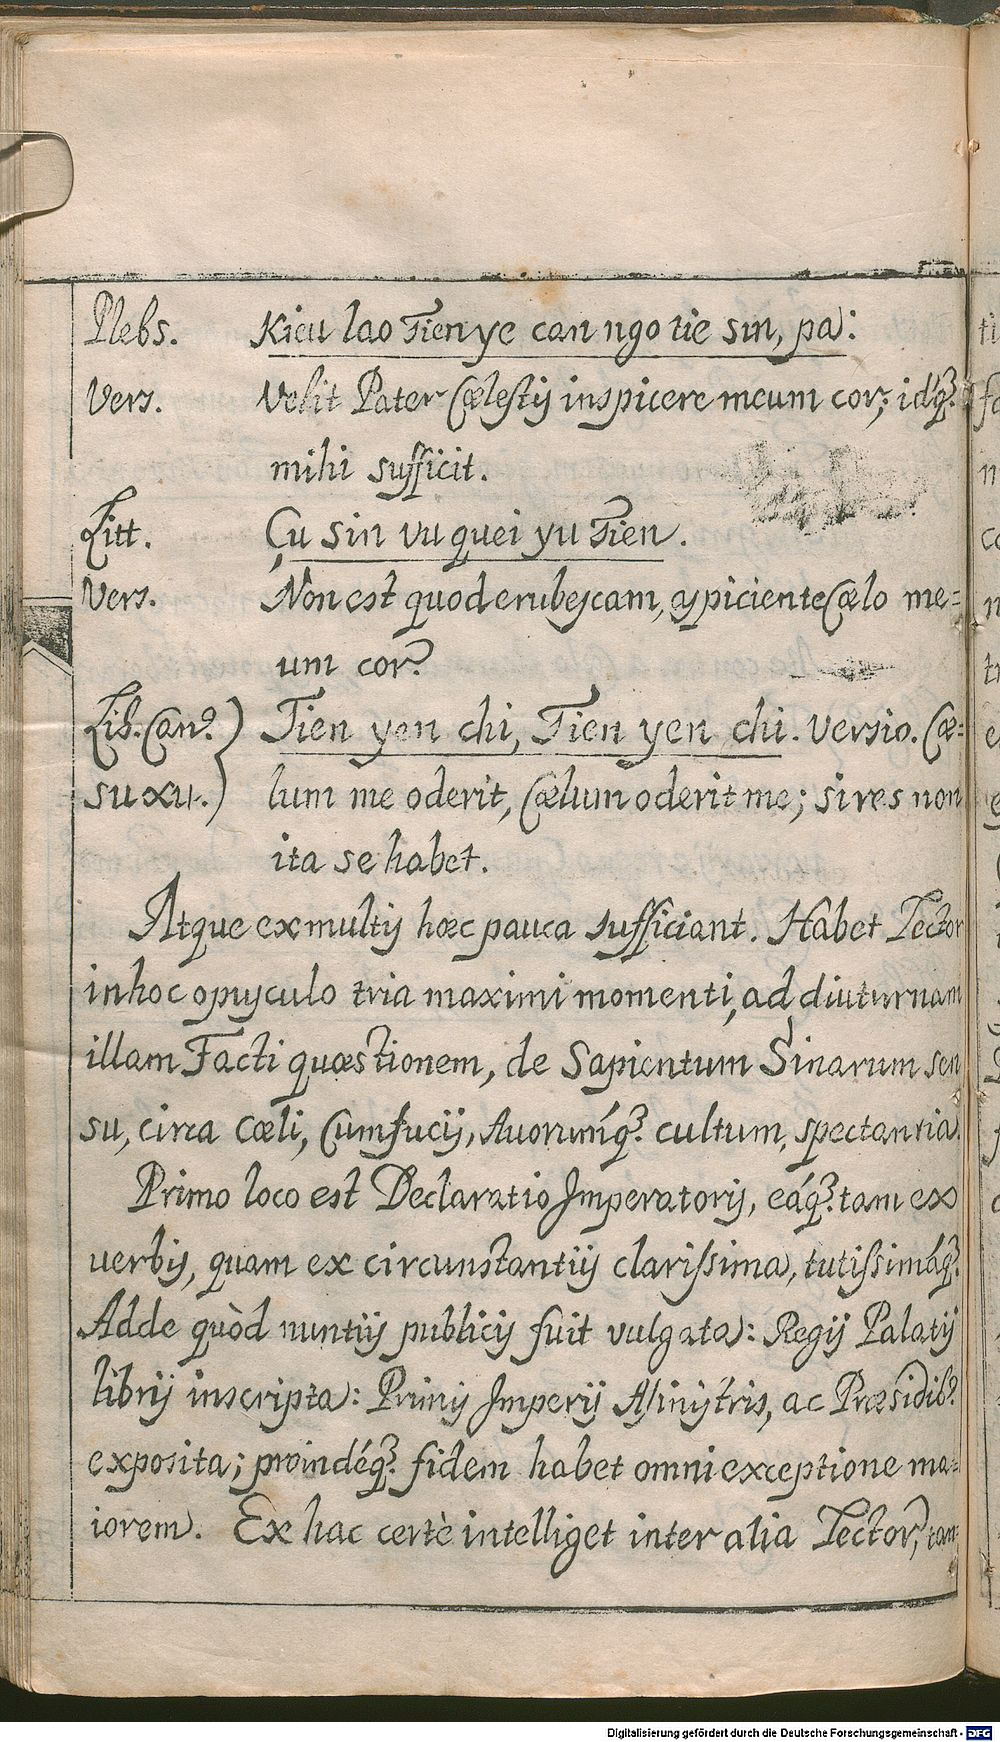 Plebs. Kieu lao Tien ye can ngo tie sin, pa:
Vers. Velit Pater Cœlestis inspicere meum cor; idq́3
mihi sufficit.
Litt. Çu sin vu quei yu Tien.
Vers. Non est quod erubescam, aspiciente Cœlo me=
um cor?
Lib. Can9 } Tien yen chi, Tien yen chi. Versio. Cœ=
su xu. lum me oderit, Cœlum oderit me; si res non
ita se habet.
Atque ex multis hæc pauca sufficiant. Habet Lector
in hoc opusculo tria maximi momenti, ad diuturnam
illam Facti quæstionem, de Sapientum Sinarum sen
su, circa Cœli, Cumfucij, Auorumq́3 cultum, spectantia.
Primo loco est Declaratio Imperatoris, eáq3 tam ex
verbis, quam ex circunstantijs clarissima, tutissimáq3.
Adde quòd nuntijs publicis fuit vulgata: Regij Palatij
libris inscripta: Primis Imperij Ministris, ac Præsidib9
exposita; proindéq3 fidem habet omni exceptione ma=
iorem. Ex hac certè intelliget inter alia Lector, tan=
Digitalisierung gefördert durch die Deutsche Forschungsgemeinschaft - DFG